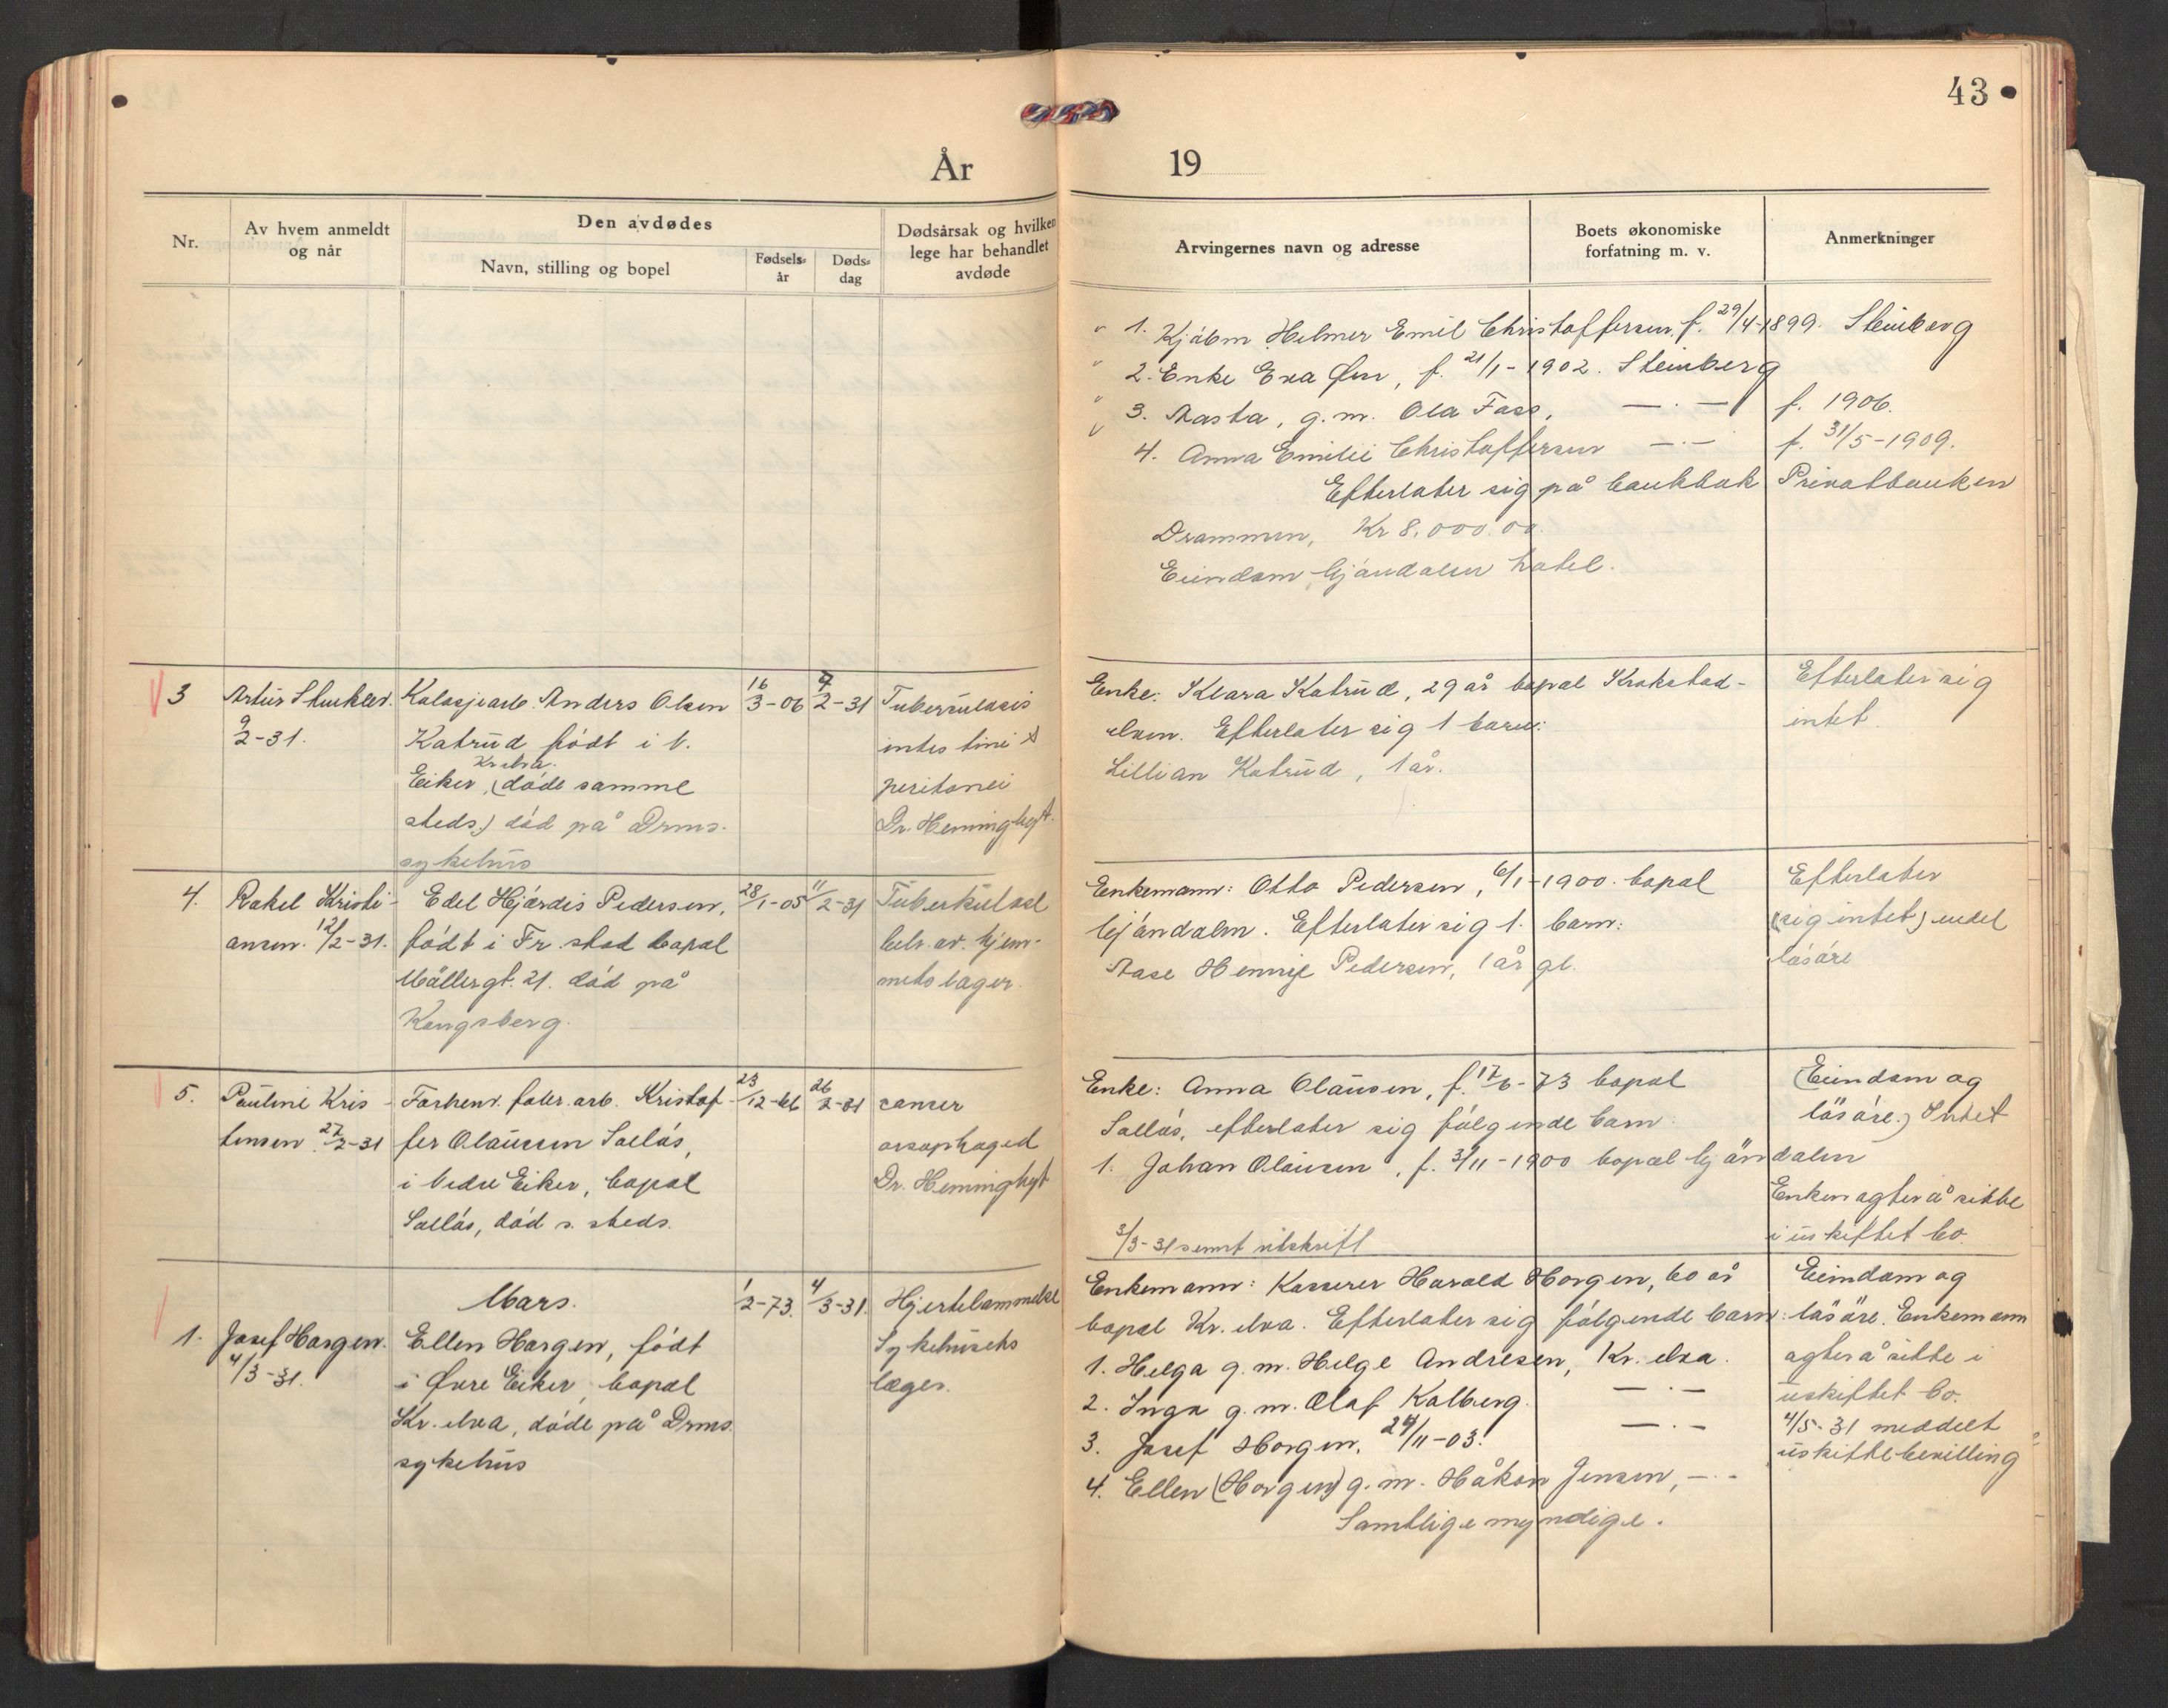 43
År 19
Nr.
Av hvem anmeldt
og når
Den avdødes
Navn, stilling og bopel
Fødsels-
år
Døds-
dag
Dødsårsak og hvilken
lege har behandlet
avdøde
Arvingernes navn og adresse
Boets økonomiske
forfatning m. v.
Anmerkninger
1. Kjøbm Helmer Emil Christoffersen f. 29/4-1899. Steinberg
2. Enke Eva f. 21/1-1902. Steinberg
3. Aasta, g.m. Ola Foss, —·— f. 1906.
4. Anna Emilie Christoffersen —·— f. 31/5-1909.
Efterlater sig på bankbok Privatbanken
Drammen, Kr 8.000.00.
Eiendom Mjøndalen hotel.
3
Artur
9/2-31.
Anders Olsen
Katrud født i N.
Kr.elva.
Eiker, (døde samme
steds) død på Drms.
sykehus
16/3-06
7/2-31
Tuberculosis
intestini &
peritonei
Dr. Heminghyt.
Enke: Klara Katrud, 29 år bopæl Krokstad-
elven. Efterlater sig 1 barn:
Lillian Katrud, 1 år.
Efterlater sig
intet.
4.
Rakel Kristi-
ansen. 12/2-31.
Edel Hjørdis Pedersen,
født i Fr.stad bopæl
Møllergt. 21. død på
Kongsberg.
28/1-05
11/2-31
Tuberkulose
beh. av. hjem-
mets læger.
Enkemann: Otto Pedersen, 6/1-1900. bopæl
Mjøndalen. Efterlater sig 1. barn:
Aase Pedersen, 1 år gl.
Efterlater
(sig intet) endel
løsøre
5.
Pauline Kris-
tensen 27/2-31
Forhenv. fabr. arb. Kristof-
fer Olaussen Solløs,
i Nedre Eiker, bopæl
Solløs, død s. steds.
23/12-66
26/2-31
cancer
Dr. Heminghyt
Enke: Anna Olausen, f. 17/6-73 bopæl
Solløs, efterlater sig følgende barn
1. Johan Olausen, f. 3/11-1900 bopæl Mjøndalen
3/3-31 sennt utskrift
(Eiendom og
løsøre.) Intet
Enken agter å sitte
i uskiftet bo.
Mars.
1.
Josef Horgen.
4/3-31.
Ellen Horgen, født
i Øvre Eiker, bopæl
Kr. elva, døde på Drms.
sykehus
1/2-73.
4/3-31.
Hjertelammelse
Sykehusets
læger.
Enkemann: Kasserer Harald Horgen, 60 år
bopæl Kr. elva. Efterlater sig følgende barn:
1. Helga g.m. Helge Andresen, Kr. elva.
2. Inga g.m. Olaf Kolberg. —·—
3. Josef Horgen, 24/11-03. —·—
4. Ellen (Horgen) g.m. Håkon Jensen, —·—
Samtlige myndige.
Eiendom og
løsøre. Enkemann
agter å sitte i
uskiftet bo.
4/5-31 meddelt
uskiftebevilling